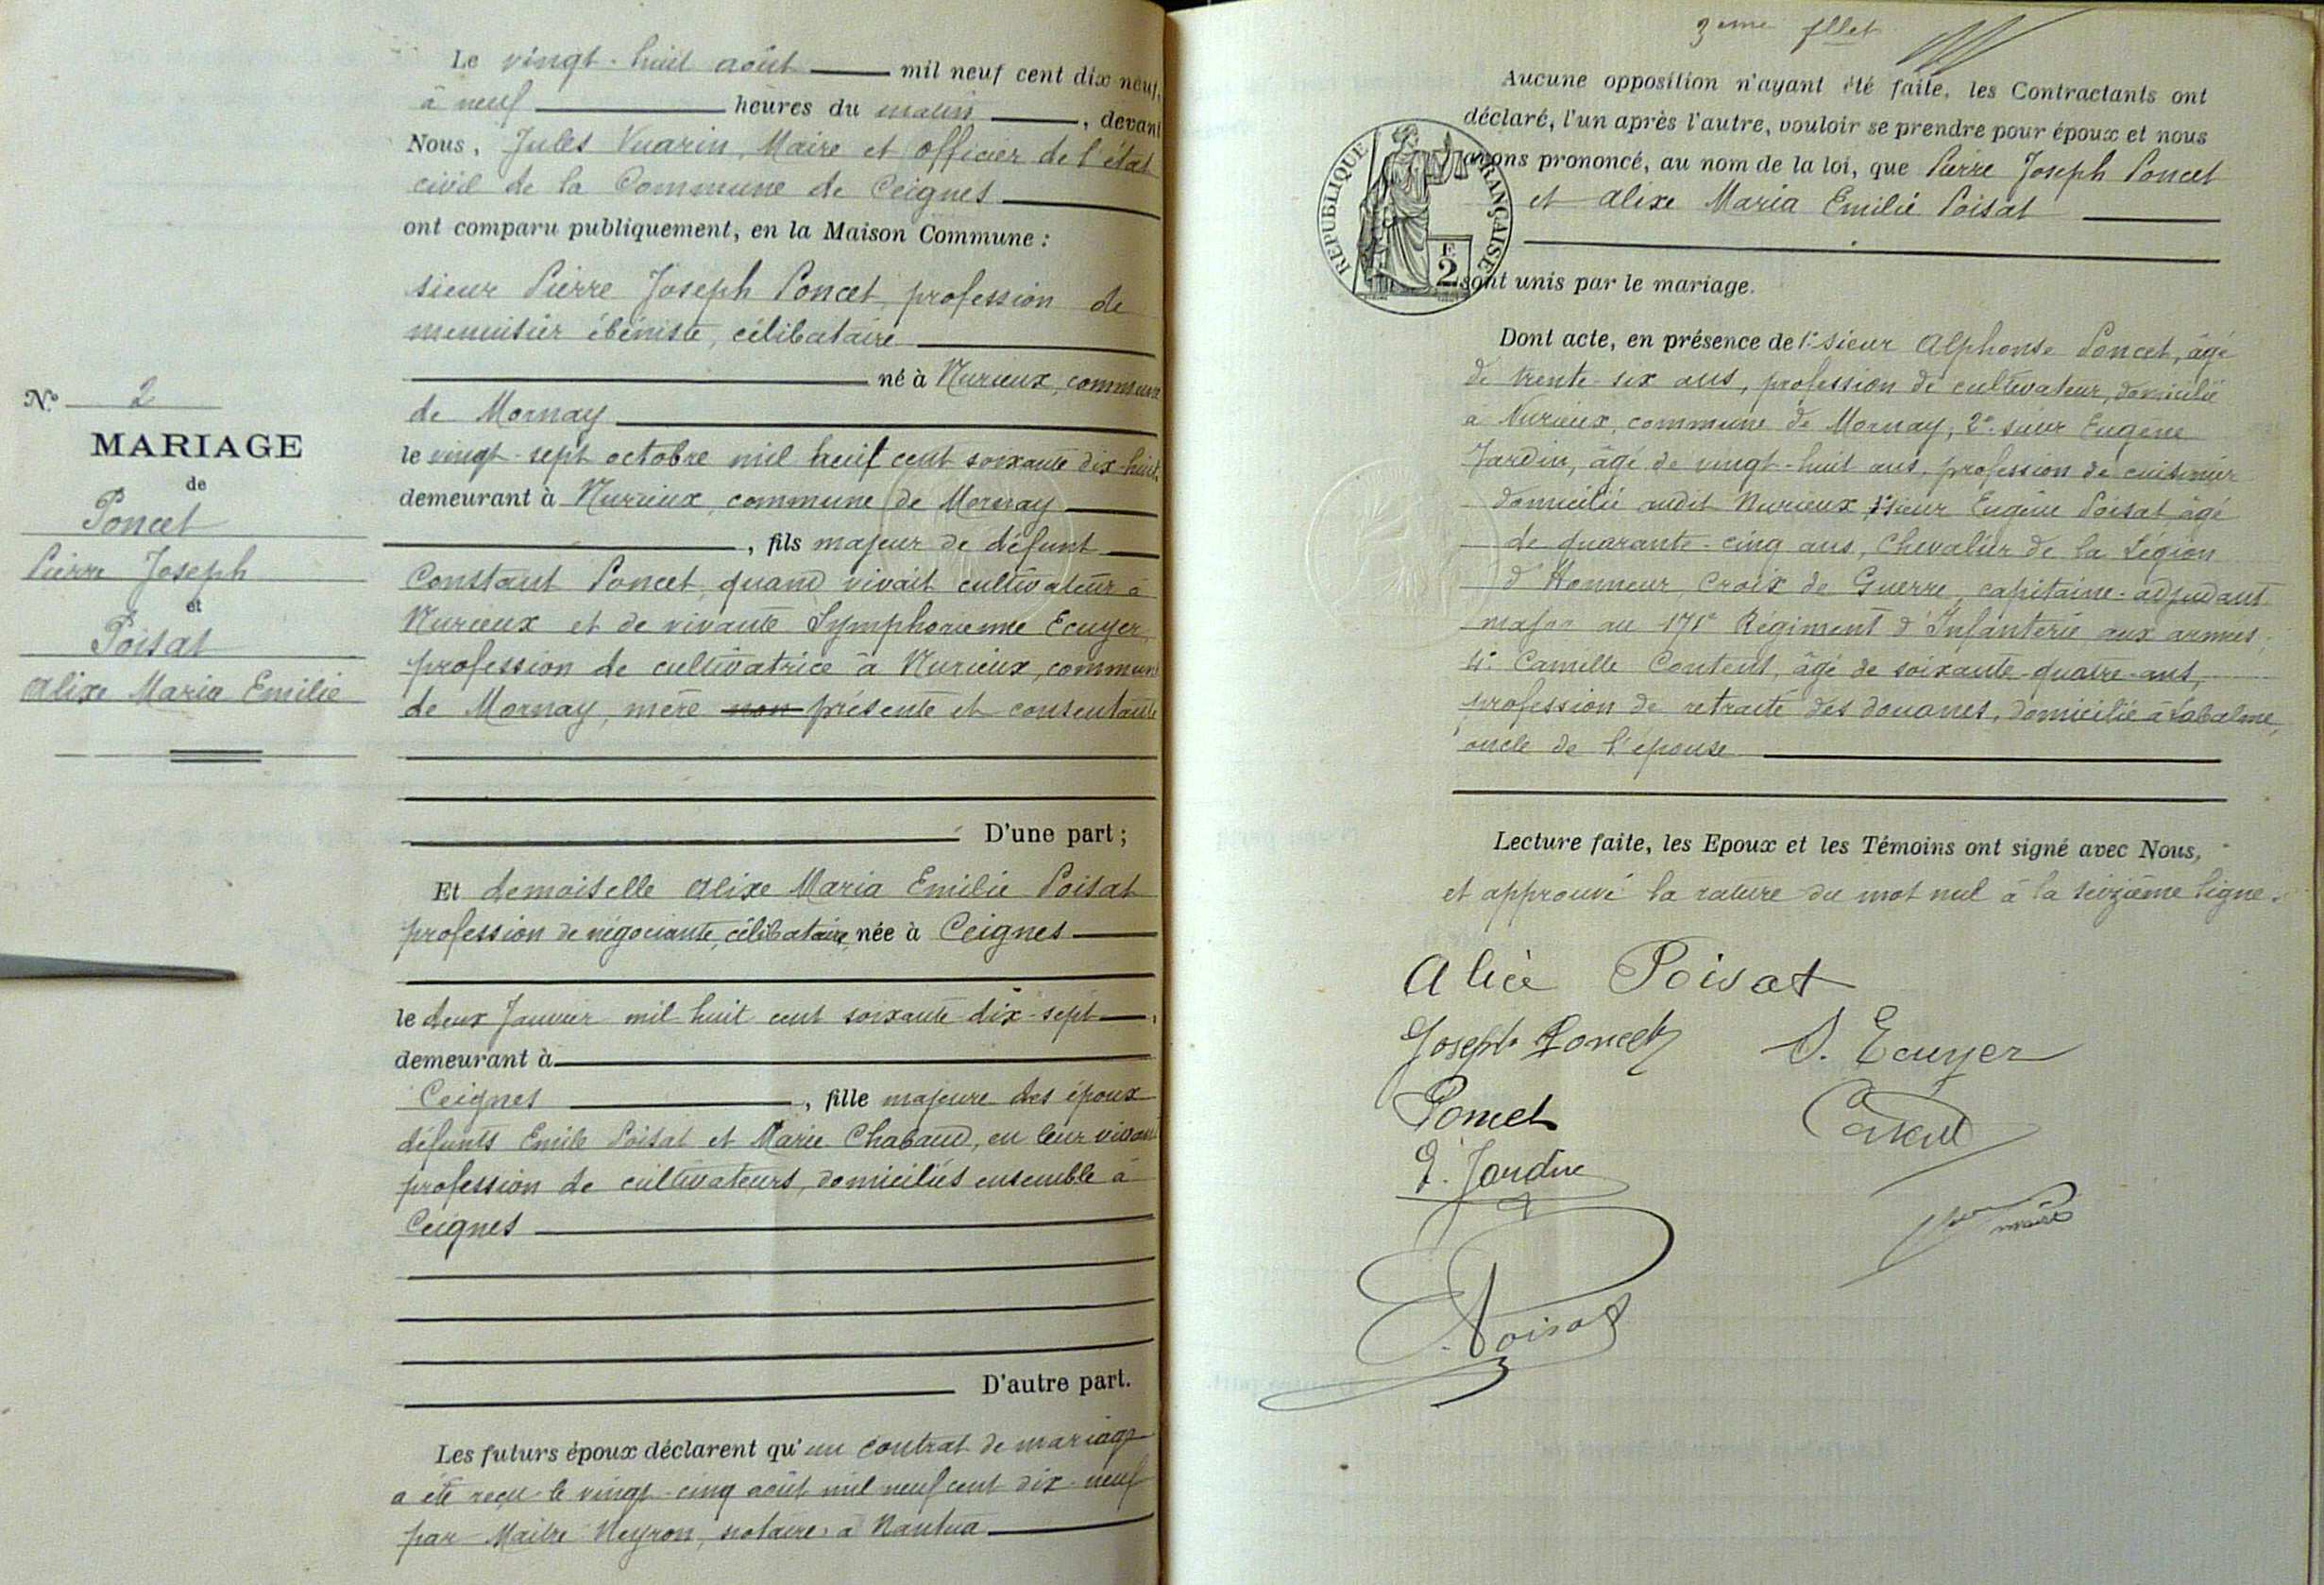 Le vingt-huit août mil neuf cent dix neuf,
à neuf heures du matin, devant
Nous, Jules Vuarin, Maire et officier de l'état
civil de la Commune de Ceignes
ont comparu publiquement, en la Maison Commune :
sieur Pierre Joseph Poncet, profession de
menuisier ébéniste, célibataire
né à Nurieux, commune
de Mornay
le vingt-sept octobre mil huit cent soixante dix-huit,
demeurant à Nurieux, commune de Mornay
, fils majeur de défunt
Constant Poncet, quand vivait cultivateur à
Nurieux et de vivante Symphorienne Ecuyer,
profession de cultivatrice à Nurieux, commune
de Mornay, mère non présente et consentante
D'une part ;
Et demoiselle Alixe Maria Emilie Poisat
profession de négociante, célibataire, née à Ceignes
le deux Janvier mil huit cent soixante dix-sept,
demeurant à
Ceignes, fille majeure des époux
défunts Emile Poisat et Marie Chabaud, en leur vivant
profession de cultivateurs, domiciliés ensemble à
Ceignes
D'autre part.
Les futurs époux déclarent qu'un contrat de mariage
a été reçu le vingt-cinq août mil neuf cent dix-neuf
par Maitre Neyron, notaire à Nantua
N° 2
MARIAGE
de
Poncet
Pierre Joseph
et
Poisat
Alixe Maria Emilie
3eme fllet
Aucune opposition n'ayant été faite, les Contractants ont
déclaré, l'un après l'autre, vouloir se prendre pour époux et nous
avons prononcé, au nom de la loi, que Pierre Joseph Poncet
et Alixe Maria Emilie Poisat
sont unis par le mariage.
RÉPUBLIQUE FRANÇAISE
2F
Dont acte, en présence de 1° sieur Alphonse Poncet, âgé
de trente-six ans, profession de cultivateur, domicilié
à Nurieux, commune de Mornay, 2° sieur Eugène
Jardin, âgé de vingt-huit ans, profession de cuisinier
domicilié audit Nurieux, 3° sieur Eugène Poisat âgé
de quarante-cinq ans, Chevalier de la Légion
d'Honneur, Croix de Guerre, capitaine-adjudant
major au 171e Régiment d'Infanterie aux armées,
4° Camille Content, âgé de soixante-quatre-ans,
profession de retraité des douanes, domicilié à Labalme,
oncle de l'épouse
Lecture faite, les Epoux et les Témoins ont signé avec Nous,
et approuvé la rature du mot nul à la seizième ligne.
Alice Poisat
Joseph Poncet S. Ecuyer
Poncet
E. Jardin
maire
E. Poisat